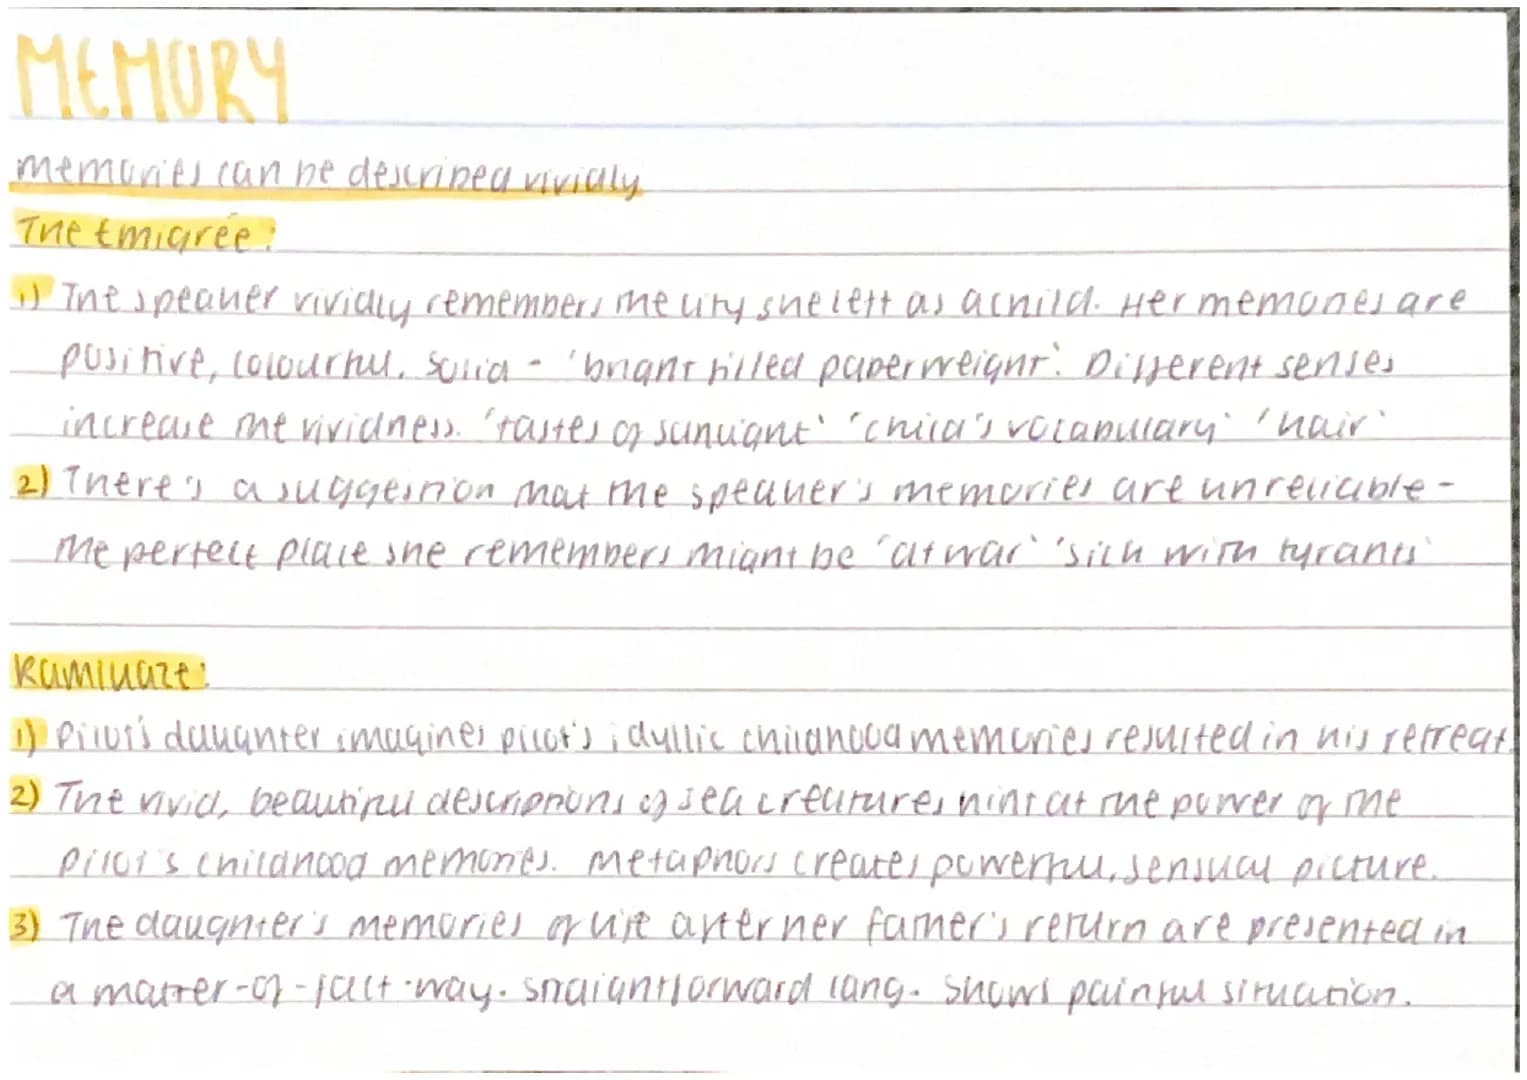 MEMORY
memories can be described vividly
The Emigrée:
1) The speaker vividly remembers the city she left as a child. Her memories are
positive, colourful, solid - 'bright filled paperweight'. Different senses
increase the vividness. 'tastes of sunlight' 'child's vocabulary' 'hair'
2) There's a suggestion that the speaker's memories are unreliable -
the perfect place she remembers might be 'at war' 'sick with tyrants'
Kamikaze:
1) Pilot's daughter imagines pilot's idyllic childhood memories resulted in his retreat.
2) The vivid, beautiful descriptions of sea creatures hint at the power of the
pilot's childhood memories. Metaphors creates powerful, sensual picture.
3) The daughter's memories of life after her father's return are presented in
a matter-of-fact-way. Straightforward lang. Shows painful situation.